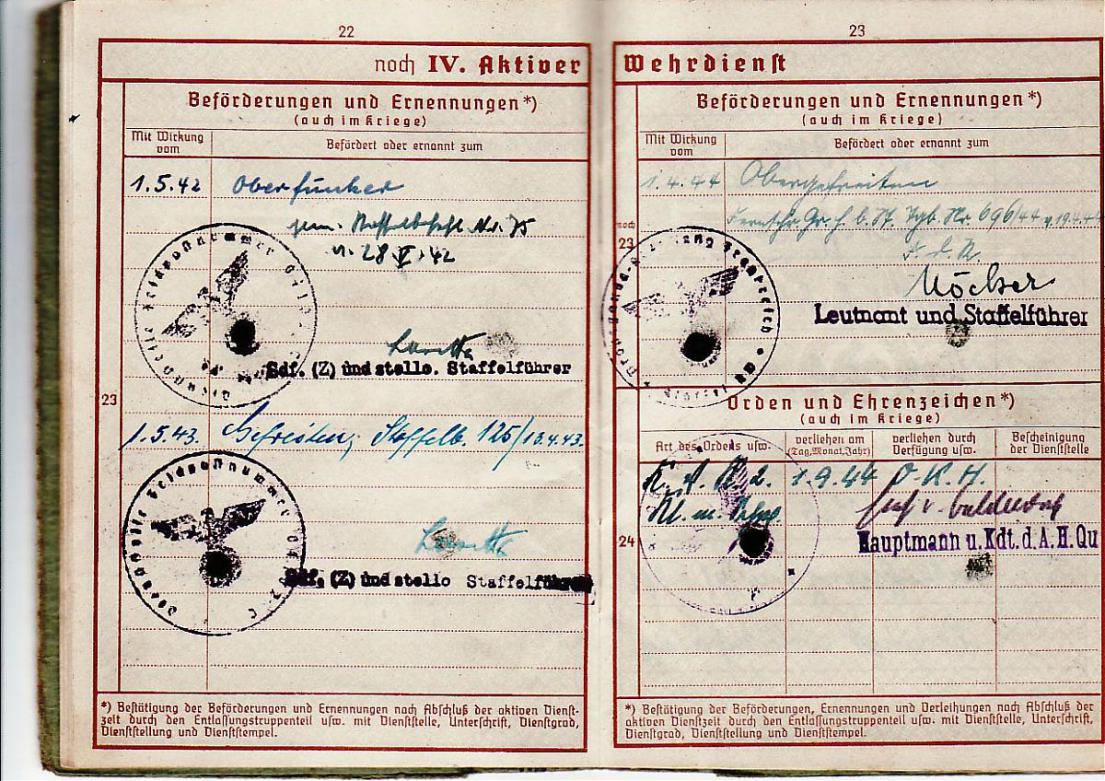 22
noch IV. Aktiver
Beförderungen und Ernennungen*)
(auch im Kriege)
Mit Wirkung vom
Befördert oder ernannt zum
1.5.42 Oberfunker
Nr. 75
28 V. 42
Sdf. (Z) und stellv. Staffelführer
23
1.5.43. Gefreiten, Staffelb. 125/
Feldpostnummer
Sdf. (Z) und stellv Staffelführer
*) Bestätigung der Beförderungen und Ernennungen nach Abschluß der aktiven Dienst-
zeit durch den Entlassungstruppenteil usw. mit Dienststelle, Unterschrift, Dienstgrad,
Dienststellung und Dienststempel.
23
Wehrdienst
Beförderungen und Ernennungen*)
(auch im Kriege)
Mit Wirkung vom
Befördert oder ernannt zum
1.4.44 Obergefreiten
Nr. 696/44 v. 19.4.44
noch
23
Leutnant und Staffelführer
Orden und Ehrenzeichen*)
(auch im Kriege)
Art des Ordens usw.
verliehen am (Tag, Monat, Jahr)
verliehen durch Verfügung usw.
Bescheinigung der Dienststelle
2. 1.9.44 O.K.H.
24
Hauptmann u. Kdt. d. A. H. Qu
*) Bestätigung der Beförderungen, Ernennungen und Verleihungen nach Abschluß der
aktiven Dienstzeit durch den Entlassungstruppenteil usw. mit Dienststelle, Unterschrift,
Dienstgrad, Dienststellung und Dienststempel.